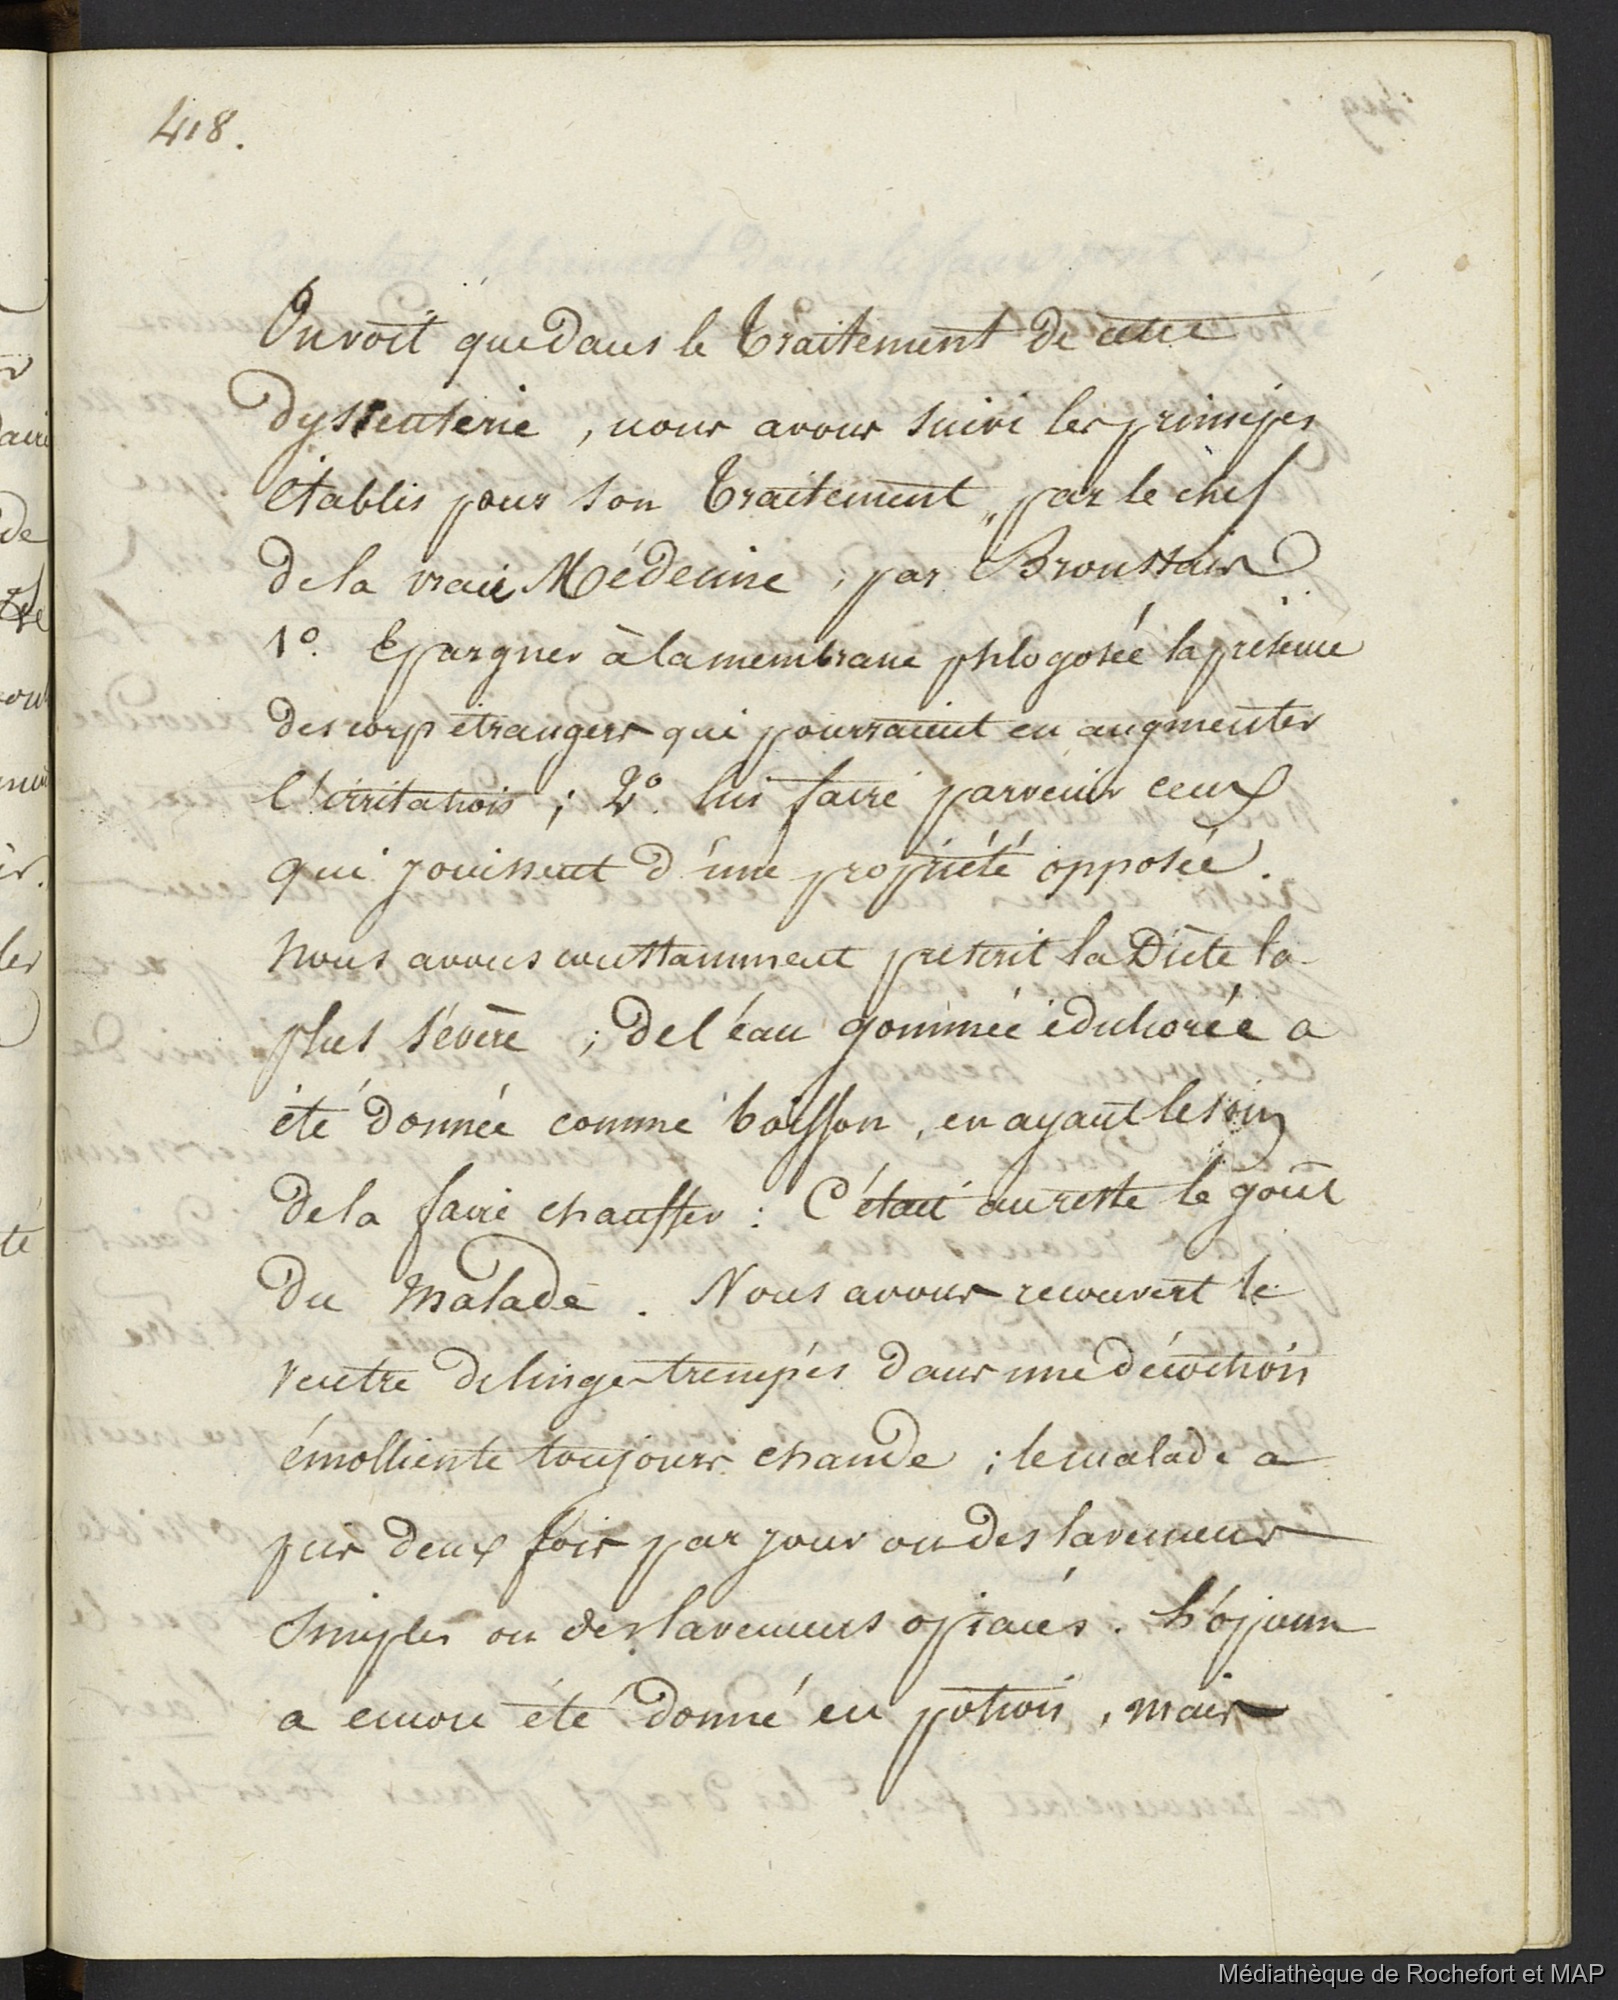 418.
On voit que dans le traitement de cette
dyssenterie, nous avons suivi les principes
établis pour son traitement, par le chef
de la vraie Médecine, par Broussais
1° Epargner à la membrane phlogosée la présence
des corp étrangers qui pourraient en augmenter
l'irritation ; 2° lui faire parvenir ceux
qui jouissent d'une propriété opposée.
Nous avons constamment prescrit la Diète la
plus sévère ; de l'éau gommée édulcorée a
été donnée comme boisson, en ayant le soin
de la faire chauffer : C'était au reste le goût
du malade. Nous avons recouvert le
ventre de linges trempés dans une décoction
émolliente toujours chaude ; le malade a
pris deux fois par jour ou des lavemens
simples ou des lavemens opiacés. L'opium
a encore été donné en potion, mais
Médiathèque de Rochefort et MAP